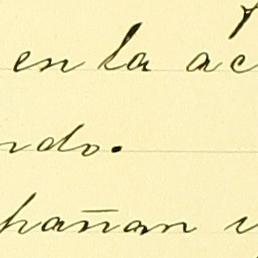 en la ac
ndo.
pañan y